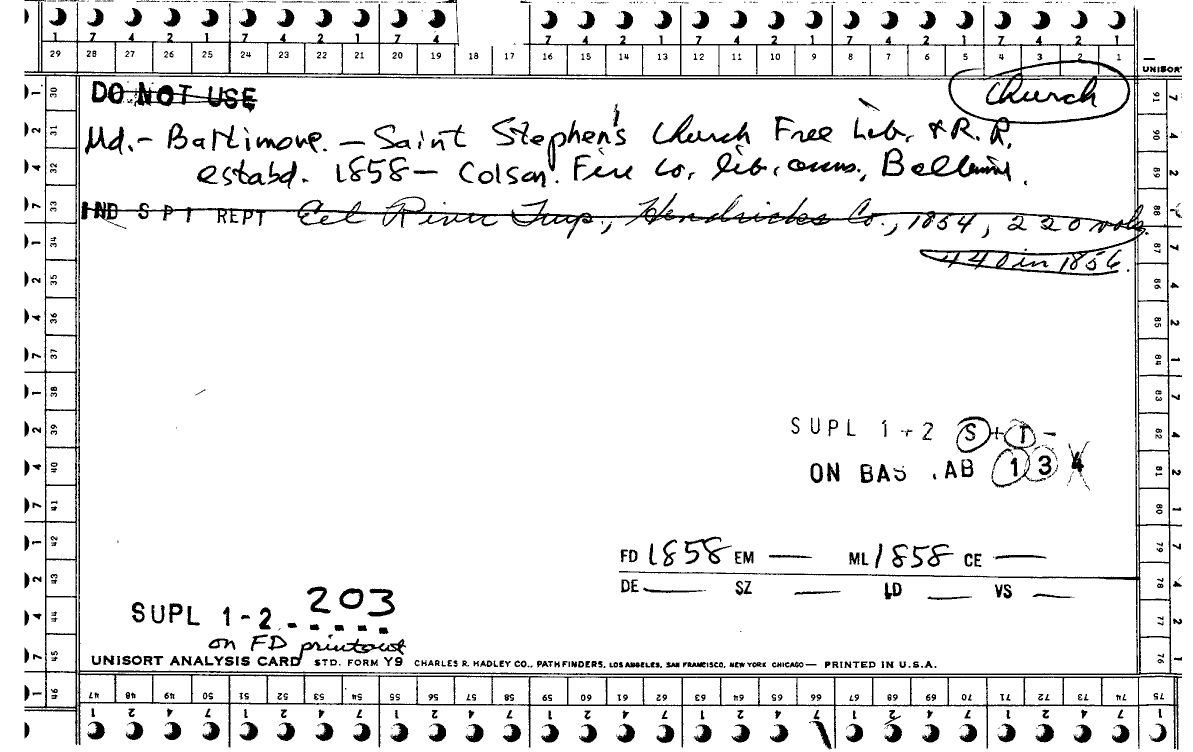 7 4 2 1 7 4 2 1 7 4 7 4 2 1 7 4 2 1 7 4 2 1 7 4 2 1
29 28 27 26 25 24 23 22 21 20 19 18 17 16 15 14 13 12 11 10 9 8 7 6 5 4 3 2 1
UNISORT
DO NOT USE
Church
Md. - Baltimore. - Saint Stephen's Church Free Lib. & R. R.
estabd. 1858 - Colson. Fire Co. lib. comm.,
IND S P I REPT Eel River Twp., Hendricks Co., 1854, 220 vols.
440 in 1856.
SUPL 1+2 S+T-
ON BAS .AB 1 3 4
FD 1858 EM — ML 1858 CE —
DE — SZ — LD — VS —
203
SUPL 1-2 - - - - -
on FD printout
UNISORT ANALYSIS CARD STD. FORM Y9 CHARLES R. HADLEY CO., PATHFINDERS, LOS ANGELES, SAN FRANCISCO, NEW YORK CHICAGO — PRINTED IN U.S.A.
30 31 32 33 34 35 36 37 38 39 40 41 42 43 44 45 46
91 90 89 88 87 86 85 84 83 82 81 80 79 78 77 76 75
47 48 49 50 51 52 53 54 55 56 57 58 59 60 61 62 63 64 65 66 67 68 69 70 71 72 73 74
1 2 4 7 1 2 4 7 1 2 4 7 1 2 4 7 1 2 4 7 1 2 4 7 1 2 4 7